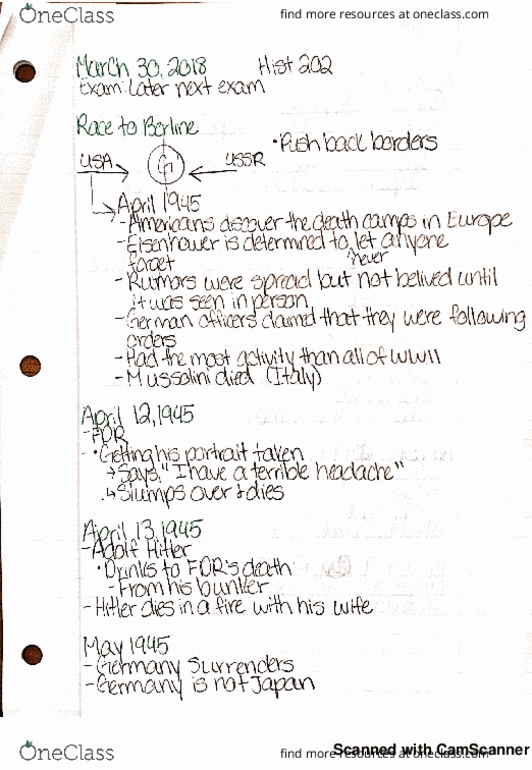 OneClass
find more resources at oneclass.com
March 30, 2018 Hist 202
Exam: later next exam
Race to Berline
•Push back borders
USA G USSR
April 1945
-Americans discover the death camps in Europe
-Eisenhower is determined to let anyone
never
forget
-Rumors were spread but not belived until
it was seen in person
-German officers claimed that they were following
orders
-Had the most activity than all of WWII
-Mussolini died (Italy)
April 12, 1945
-FDR
•Getting his portrait taken
→Says, "I have a terrible headache"
↳Slumps over & dies
April 13, 1945
-Adolf Hitler
•Drinks to FDR's death
-From his bunker
-Hitler dies in a fire with his wife
May 1945
-Germany surrenders
-Germany is not Japan
OneClass
find more resources at oneclass.com
Scanned with CamScanner